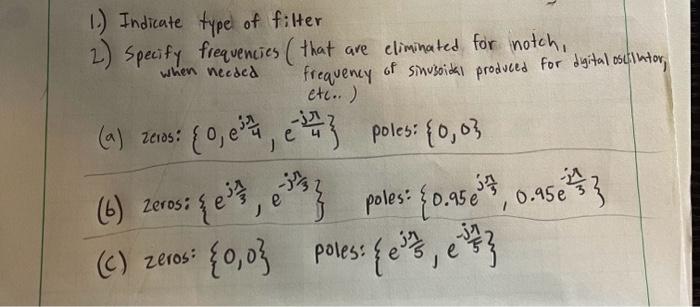 1.) Indicate type of filter
2) Specify frequencies (that are eliminated for notch,
when needed frequency of sinusoidal produced for digital oscillator,
etc..)
(a) zeros: {0, e^{jπ/4}, e^{-jπ/4}} poles: {0,0}
(b) zeros: {e^{jπ/3}, e^{-jπ/3}} poles: {0.95e^{jπ/3}, 0.95e^{-jπ/3}}
(c) zeros: {0,0} poles: {e^{jπ/5}, e^{-jπ/5}}